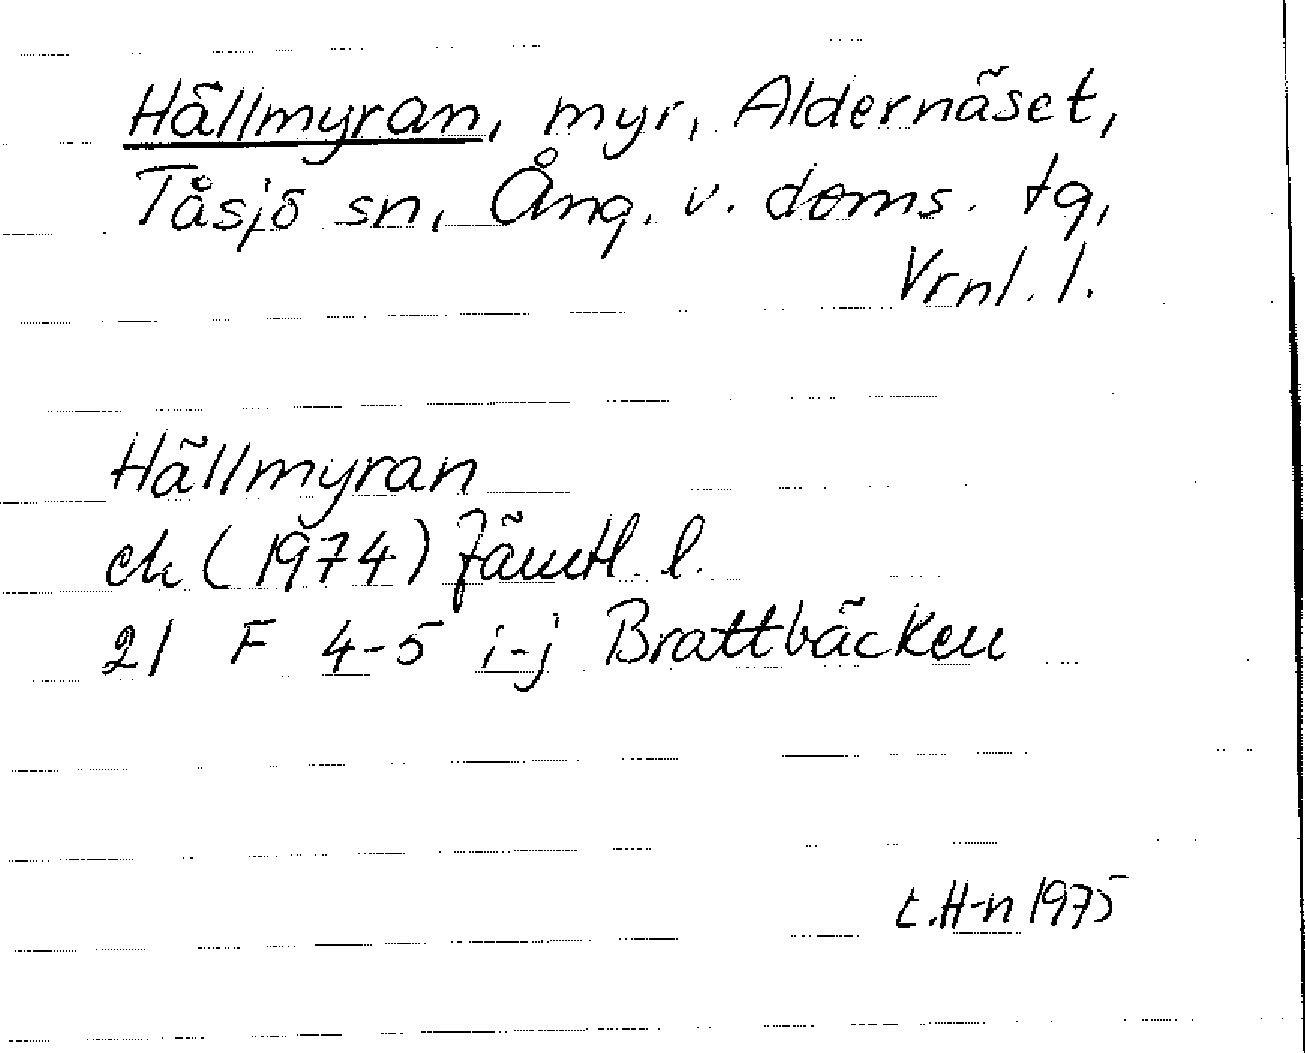 Hällmyran, myr, Aldernäset,
Tåsjö sn, Ång. v. doms. tg,
Vrnl. l.
Hällmyran
ek (1974) Jämtl. l.
21 F 4-5 i-j Brattbäcken
E.H-n 1975